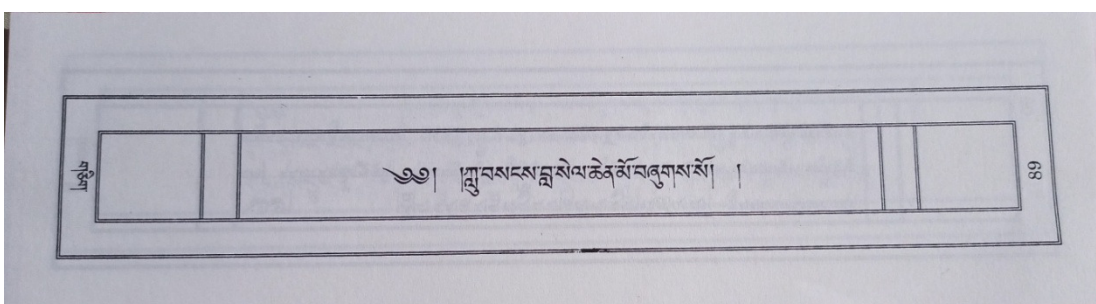 གཅིག
༄༅། །ཀླུ་བསངས་བླ་སེལ་ཆེན་མོ་བཞུགས་སོ། །
89